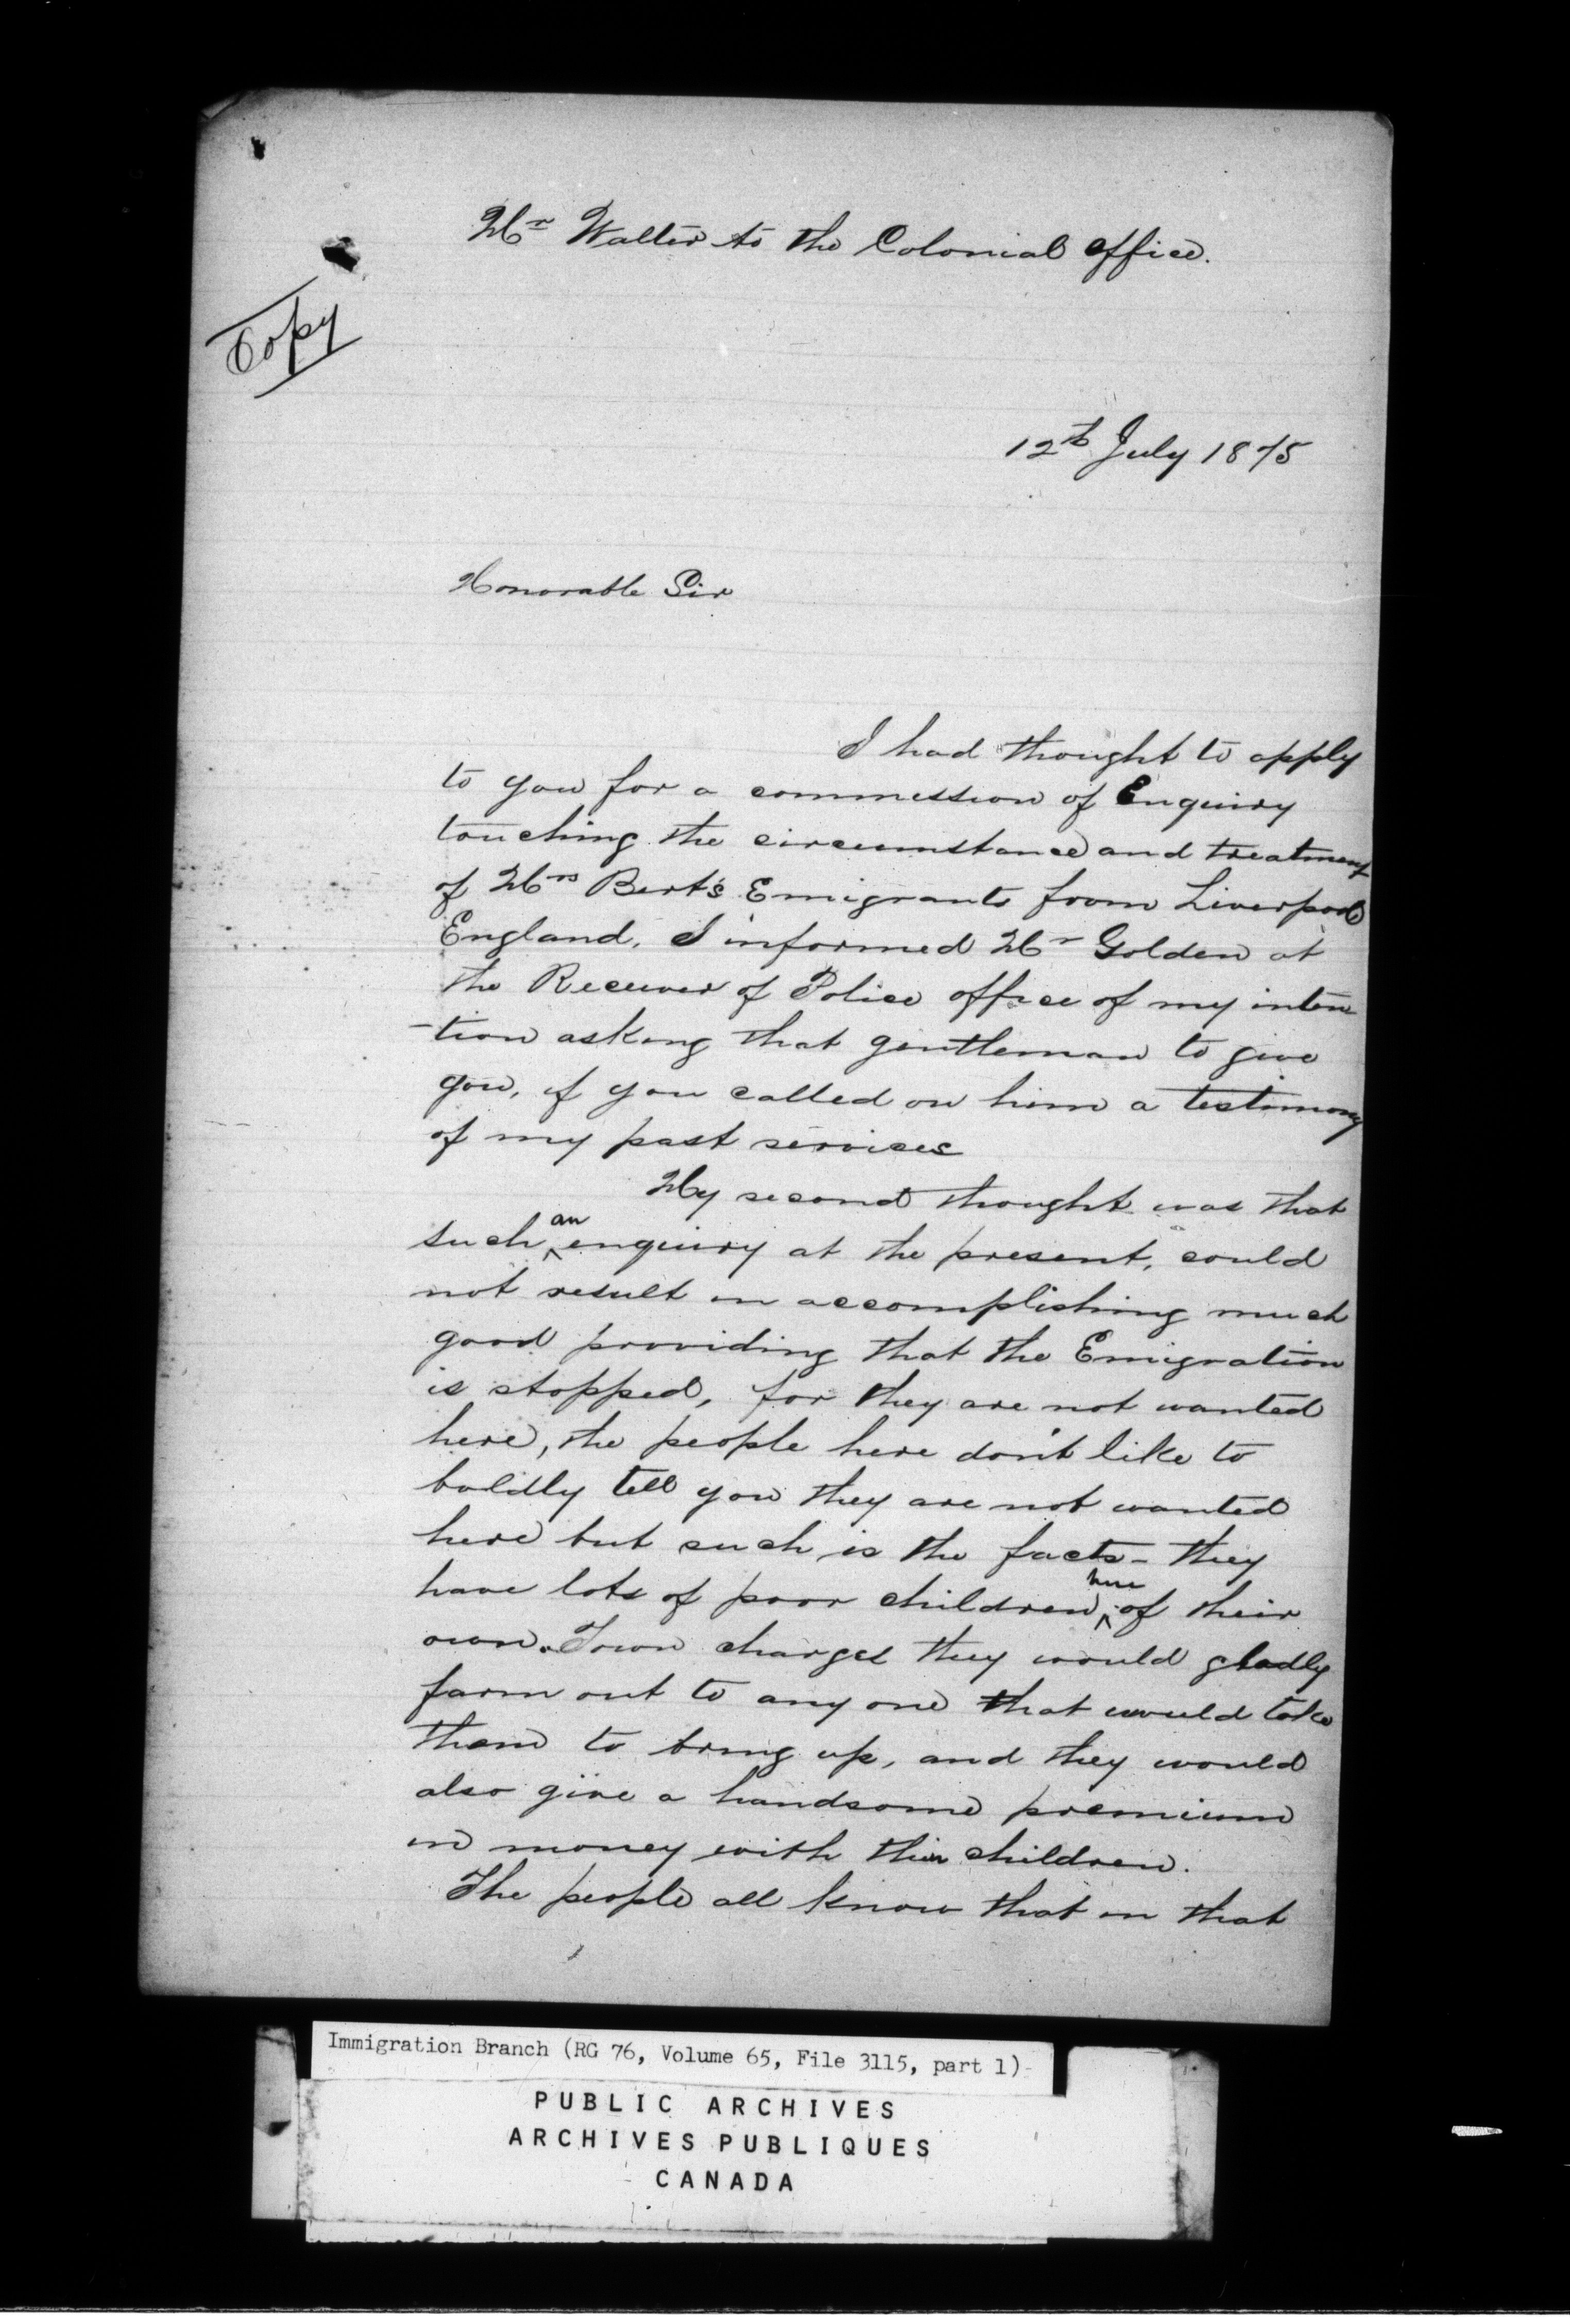 Mr Walter to the Colonial Office.
Copy
12th July 1875
Honorable Sir
I had thought to apply
to you for a commission of Enquiry
touching the circumstance and treatment
of Mrs Birt's Emigrants from Liverpool
England. I informed Mr Golden at
the Receiver of Police office of my inten
-tion asking that gentleman to give
you, if you called on him a testimony
of my past services
My second thought was that
such an enquiry at the present, could
not result in accomplishing much
good providing that the Emigration
is stopped, for they are not wanted
here, the people here don't like to
boldly tell you they are not wanted
here but such is the facts - they
have lots of poor children here of their
own. Town charges they would gladly
farm out to any one that would take
them to bring up, and they would
also give a handsome premium
in money with their children.
The people all know that in that
Immigration Branch (RG 76, Volume 65, File 3115, part 1)
PUBLIC ARCHIVES
ARCHIVES PUBLIQUES
CANADA